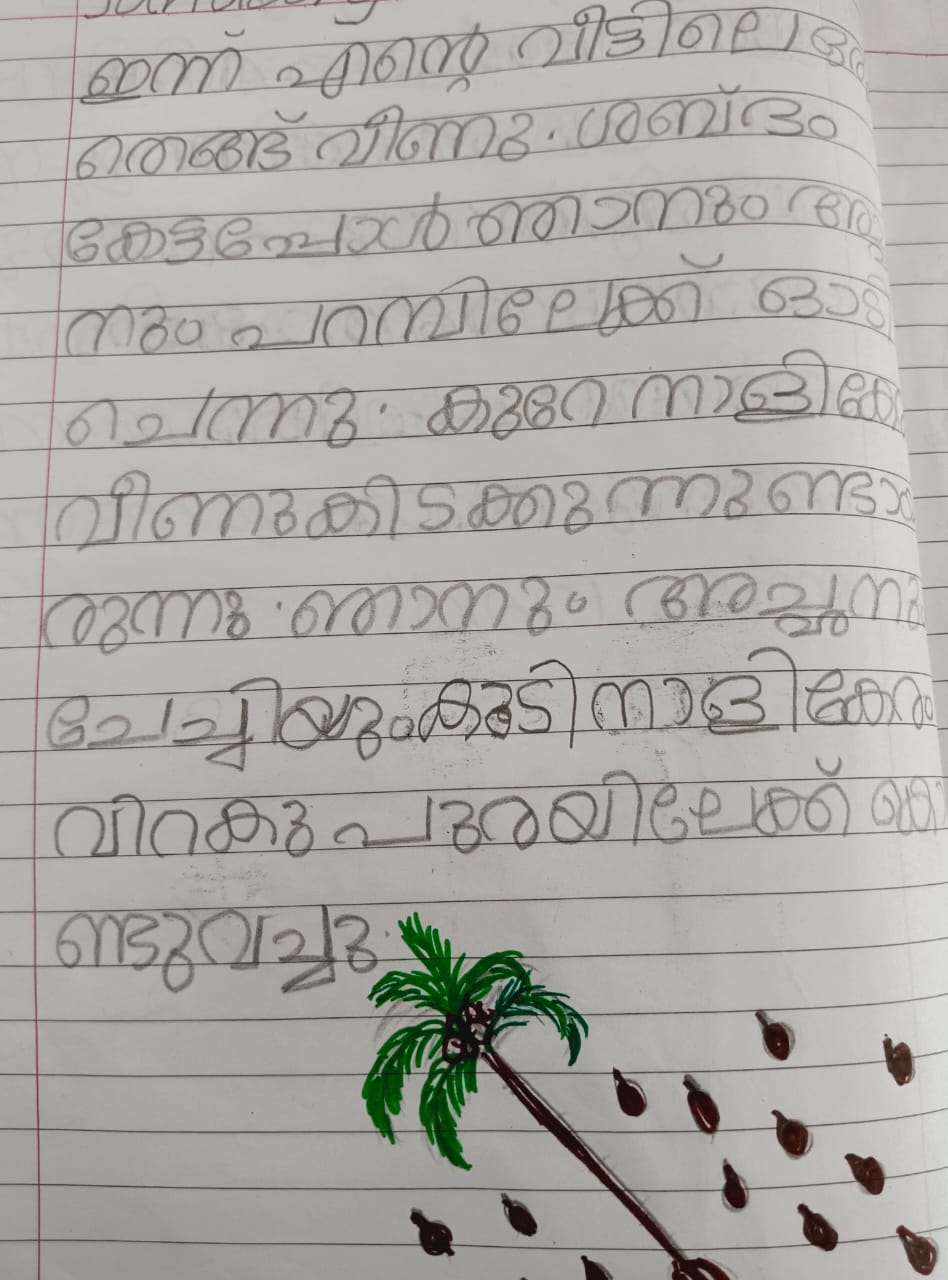 ഇന്ന് എന്റെ വീട്ടിലെ ഒരു
തെങ്ങ് വീണു. ശബ്ദം
കേട്ടപ്പോൾ ഞാനും അച്ഛ
നും പറമ്പിലേക്ക് ഓടി
ചെന്നു. കുറേ നാളികേരം
വീണുകിടക്കുന്നുണ്ടായി
രുന്നു. ഞാനും അച്ഛനും
ചേച്ചിയുംകൂടി നാളികേരം
വിറകു പുരയിലേക്ക് കൊ
ണ്ടുവച്ചു.